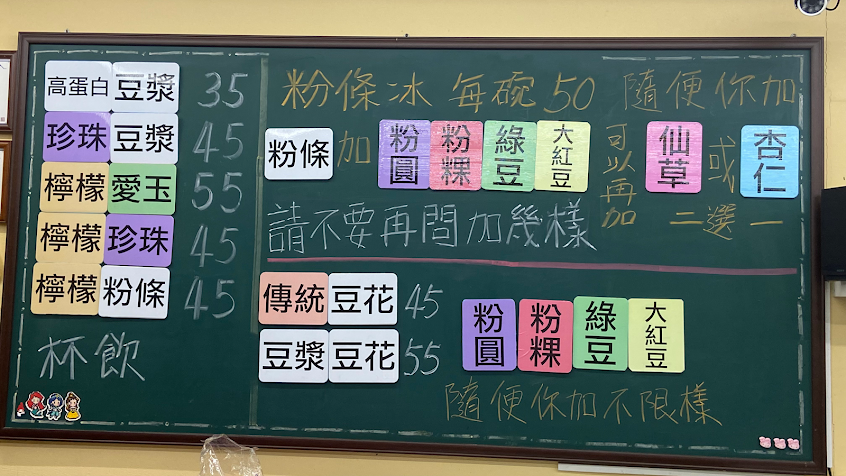 高蛋白豆漿 35
珍珠豆漿 45
檸檬愛玉 55
檸檬珍珠 45
檸檬粉條 45
杯飲
粉條冰 每碗50 隨便你加
粉條加粉圓粉粿綠豆大紅豆可以再加仙草或杏仁
二選一
請不要再問加幾樣
傳統豆花 45
豆漿豆花 55
粉圓粉粿綠豆大紅豆
隨便你加不限樣